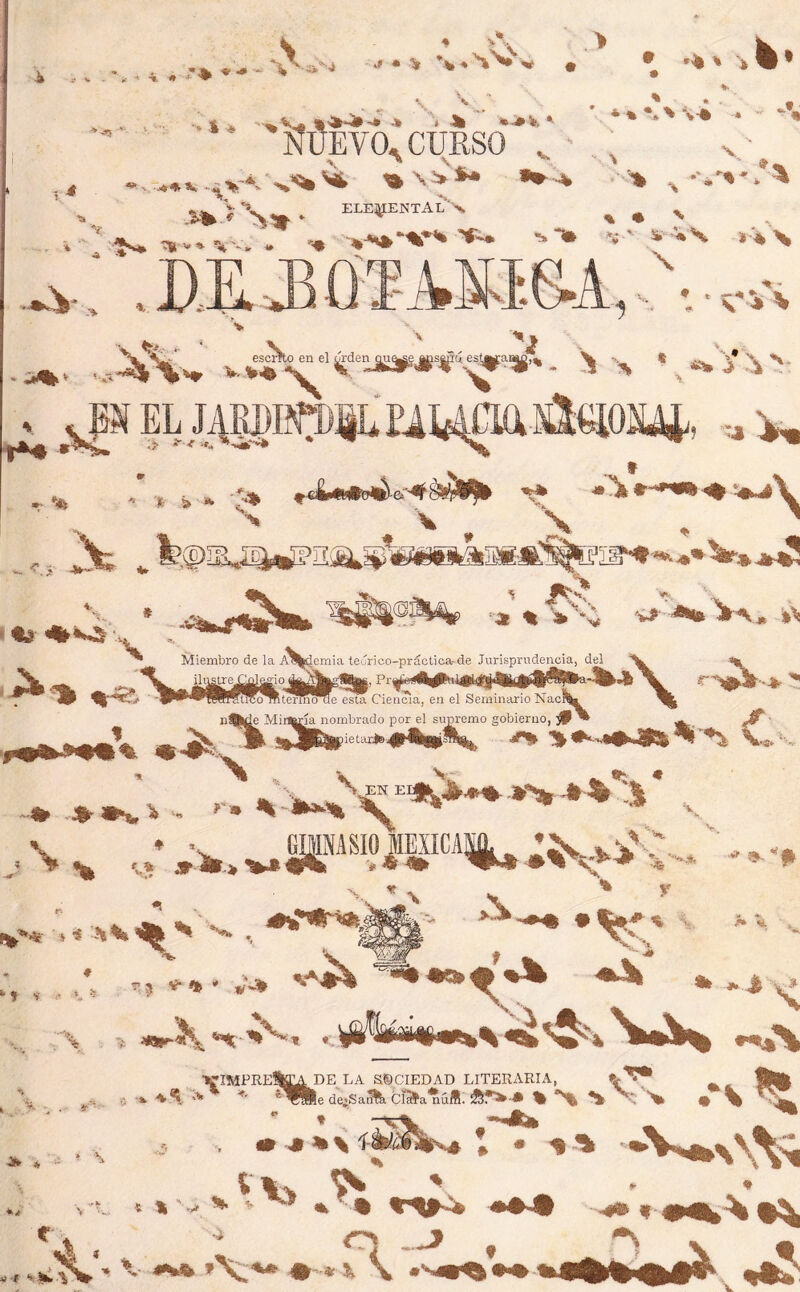 NUEVO CURSO
ELEMENTAL
DE BOTANICA,
escrito en el órden que se enseñó este ramo,
EN EL JARDIN DEL PALACIO NACIONAL,
el año de 1845,
POR D. PIO
Y ROCHA,
Miembro de la Academia teórico-práctica de Jurisprudencia, del
ilustre Colegio de Abogados,
interino de esta Ciencia, en el Seminario Nacio-
nal de Minería nombrado por el supremo gobierno, y
propietario de la misma,
EN EL
GIMNASIO MEXICANO.
México.
IMPRENTA DE LA SOCIEDAD LITERARIA,
Calle de Santa Clara núm. 23.
1846.